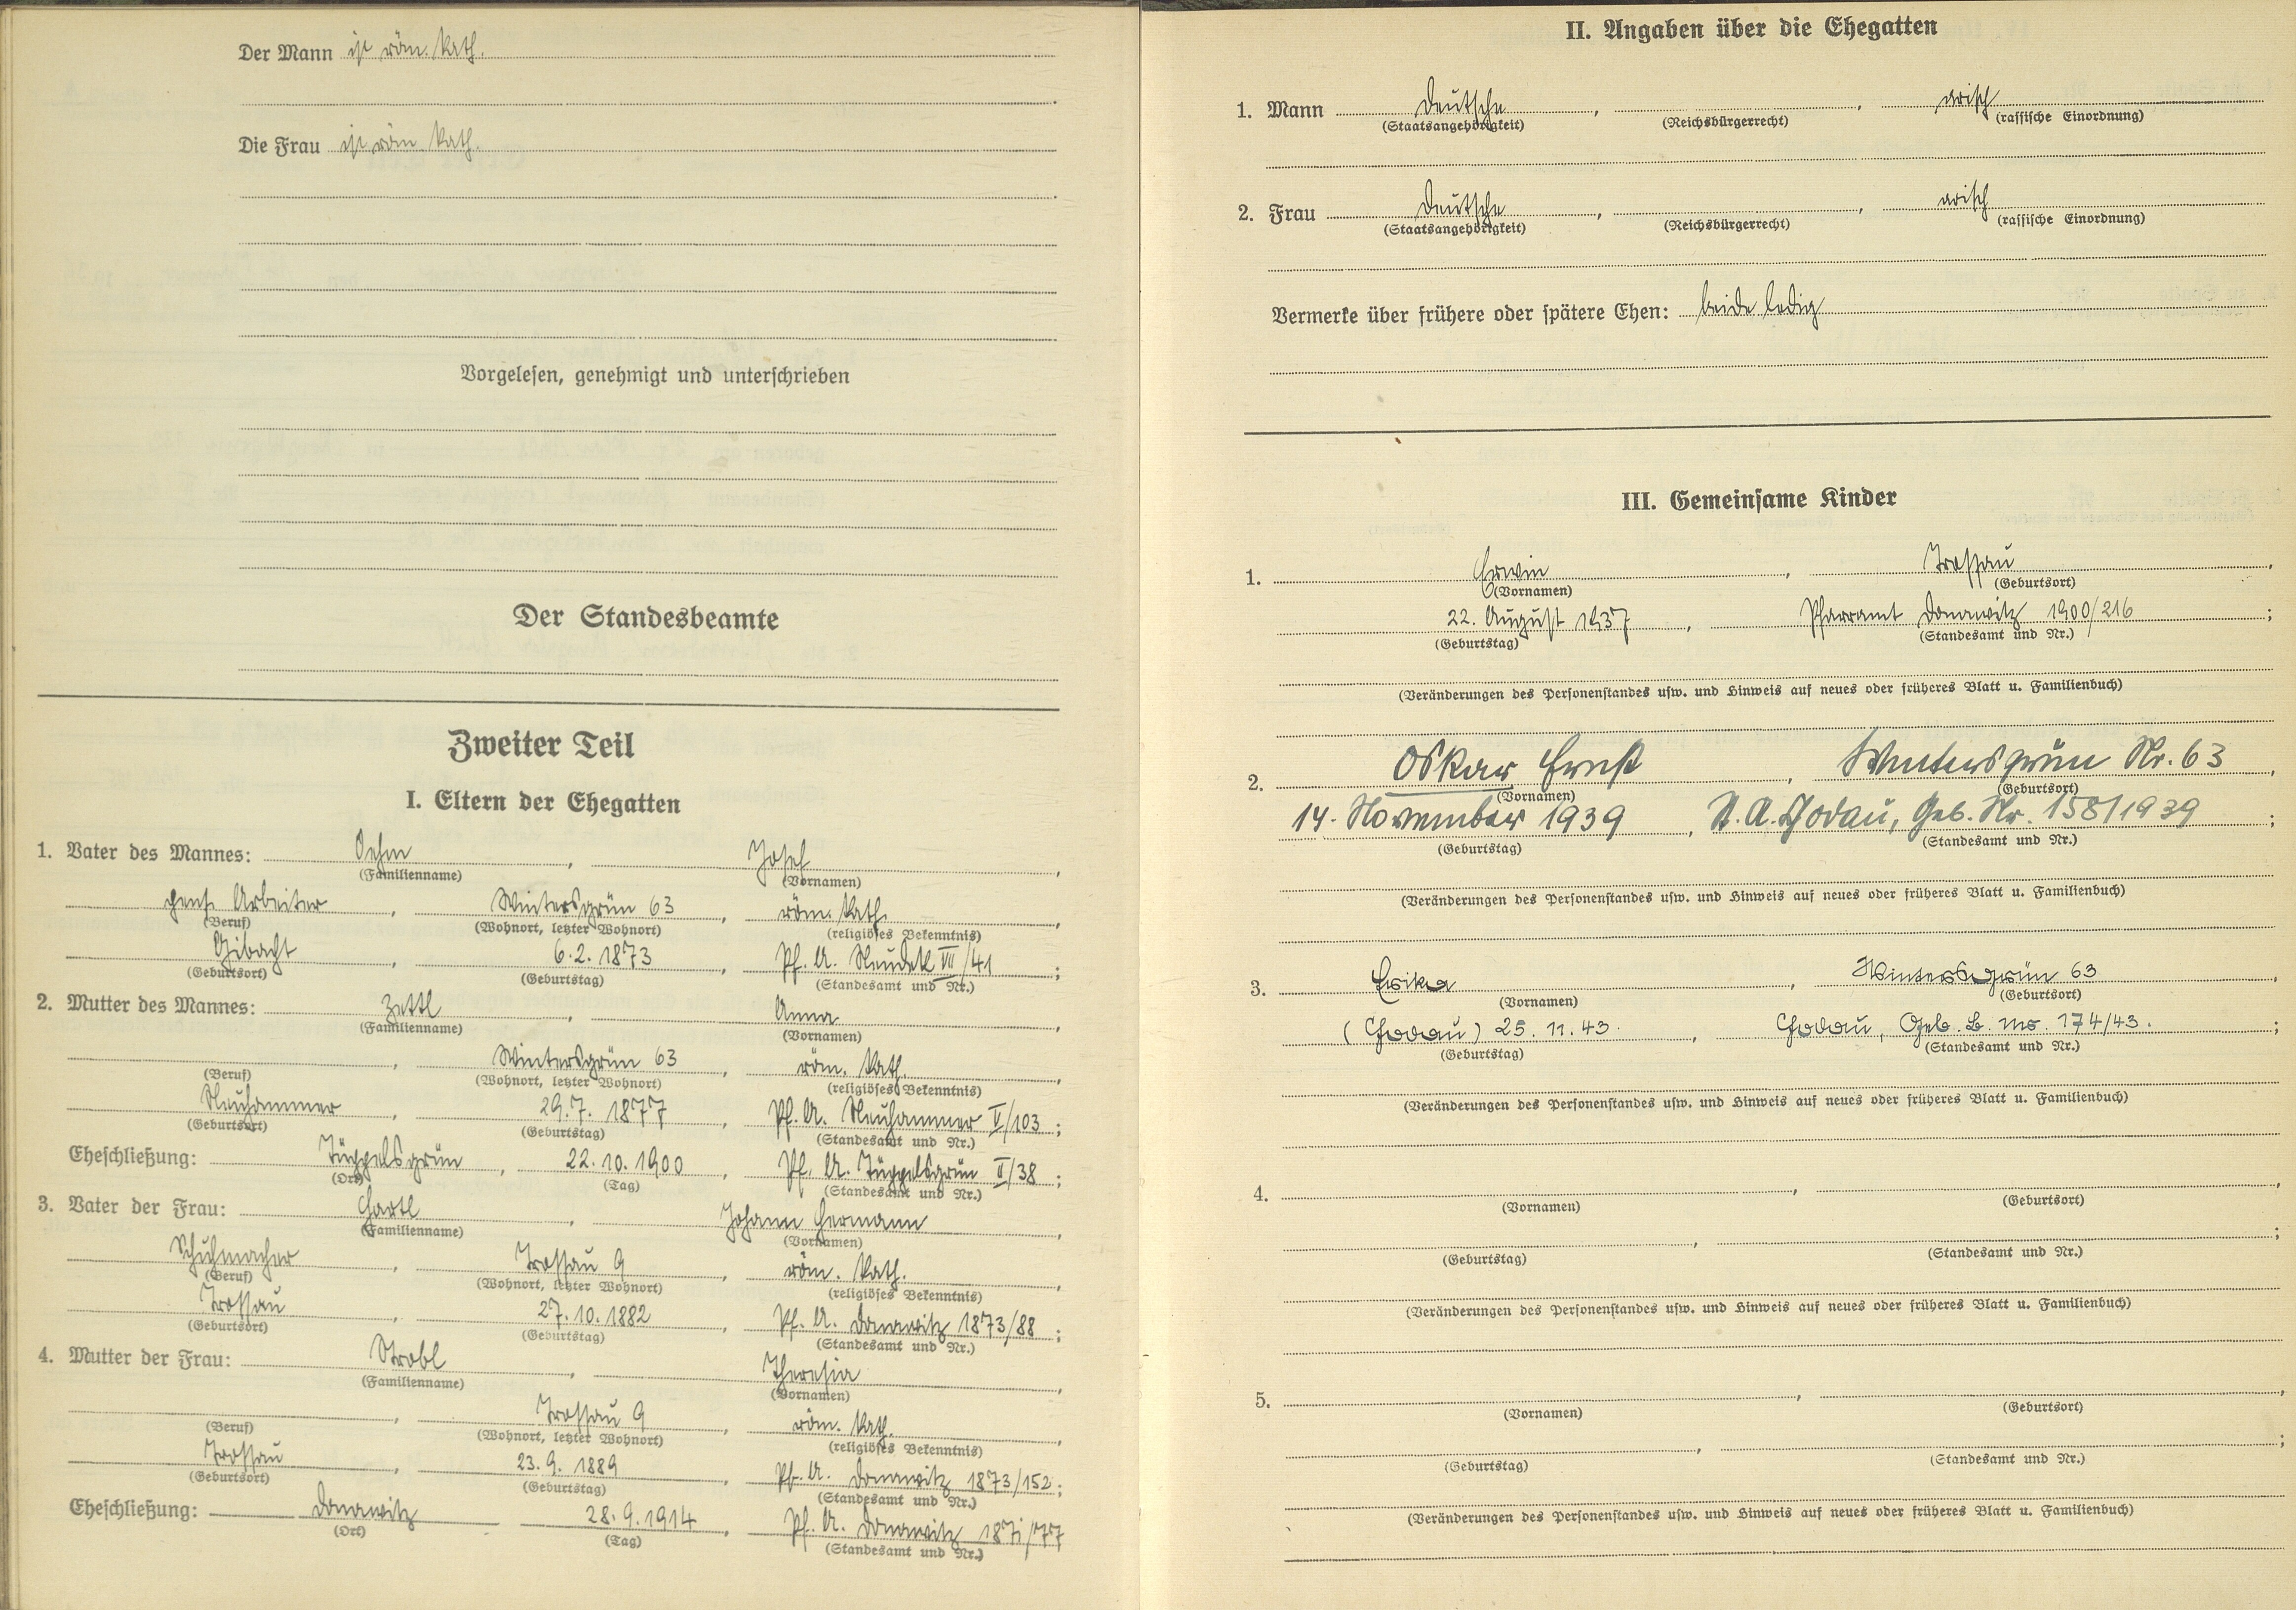 Der Mann ist röm. kath.
Die Frau ist röm. kath.
Vorgelesen, genehmigt und unterschrieben
Der Standesbeamte
Zweiter Teil
I. Eltern der Ehegatten
1. Vater des Mannes: Oehm, Josef,
(Familienname) (Vornamen)
Arbeiter, Wintersgrün 63, röm. kath.,
(Beruf) (Wohnort, letzter Wohnort) (religiöses Bekenntnis)
Gibacht, 6.2.1873, Pf. A. Neudek VII/41;
(Geburtsort) (Geburtstag) (Standesamt und Nr.)
2. Mutter des Mannes: Zettl, Anna,
(Familienname) (Vornamen)
, Wintersgrün 63, röm. kath.,
(Beruf) (Wohnort, letzter Wohnort) (religiöses Bekenntnis)
Neuhammer, 29.7.1877, Pf. A. Neuhammer V/103;
(Geburtsort) (Geburtstag) (Standesamt und Nr.)
Eheschließung: Tüppelsgrün, 22.10.1900, Pf. A. Tüppelsgrün II/38;
(Ort) (Tag) (Standesamt und Nr.)
3. Vater der Frau: Hartl, Johann Hermann,
(Familienname) (Vornamen)
Schuhmacher, Trossau 9, röm. kath.,
(Beruf) (Wohnort, letzter Wohnort) (religiöses Bekenntnis)
Trossau, 27.10.1882, Pf. A. Donawitz 1873/88;
(Geburtsort) (Geburtstag) (Standesamt und Nr.)
4. Mutter der Frau: Strobl, Theresia,
(Familienname) (Vornamen)
, Trossau 9, röm. kath.,
(Beruf) (Wohnort, letzter Wohnort) (religiöses Bekenntnis)
Trossau, 23.9.1889, Pf. A. Donawitz 1873/152;
(Geburtsort) (Geburtstag) (Standesamt und Nr.)
Eheschließung: Donawitz 28.9.1914, Pf. A. Donawitz
(Ort) (Tag) (Standesamt und Nr.)
II. Angaben über die Ehegatten
1. Mann Deutsche, , arisch
(Staatsangehörigkeit) (Reichsbürgerrecht) (rassische Einordnung)
2. Frau Deutsche, , arisch
(Staatsangehörigkeit) (Reichsbürgerrecht) (rassische Einordnung)
Vermerke über frühere oder spätere Ehen: beide ledig
III. Gemeinsame Kinder
1. Erwin, Trossau,
(Vornamen) (Geburtsort)
22. August 1937, Pfarramt Donawitz 1900/216;
(Geburtstag) (Standesamt und Nr.)
(Veränderungen des Personenstandes usw. und Hinweis auf neues oder früheres Blatt u. Familienbuch)
2. Oskar Ernst, Wintersgrün Nr. 63,
(Vornamen) (Geburtsort)
14. November 1939, St. A. Chodau, Geb. Nr. 158/1939;
(Geburtstag) (Standesamt und Nr.)
(Veränderungen des Personenstandes usw. und Hinweis auf neues oder früheres Blatt u. Familienbuch)
3. Erika, Wintersgrün 63,
(Vornamen) (Geburtsort)
(Chodau) 25.11.43., Chodau, Geb. B. No. 174/43.;
(Geburtstag) (Standesamt und Nr.)
(Veränderungen des Personenstandes usw. und Hinweis auf neues oder früheres Blatt u. Familienbuch)
4. , ,
(Vornamen) (Geburtsort)
, ;
(Geburtstag) (Standesamt und Nr.)
(Veränderungen des Personenstandes usw. und Hinweis auf neues oder früheres Blatt u. Familienbuch)
5. , ,
(Vornamen) (Geburtsort)
, ;
(Geburtstag) (Standesamt und Nr.)
(Veränderungen des Personenstandes usw. und Hinweis auf neues oder früheres Blatt u. Familienbuch)